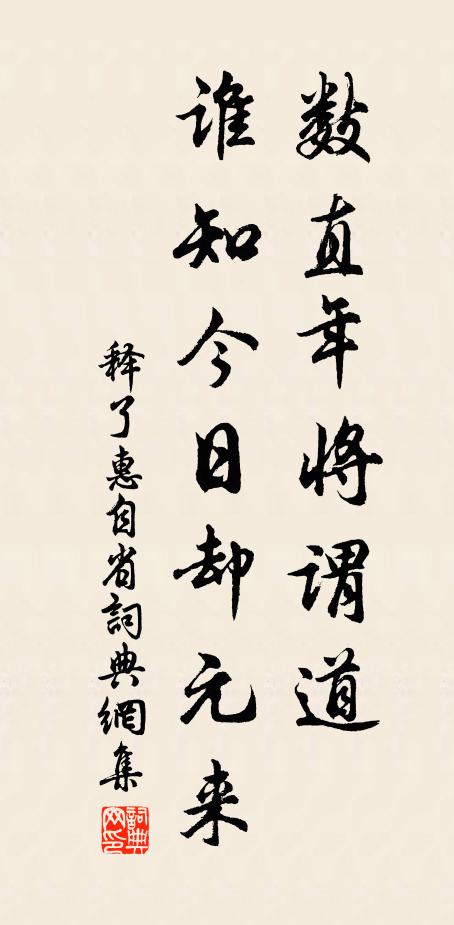 数直年将谓道
谁知今日却元来
释了惠自省詞典網集
詞典网印